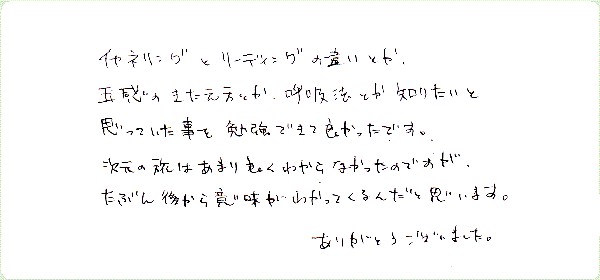 チャネリングとリーディングの違いとか、
五感のきたえ方とか、呼吸法とか知りたいと
思っていた事を勉強できて良かったです。
次元の旅はあまり良くわからなかったのですが、
たぶん後から意味がわかってくるんだと思います。
ありがとうございました。